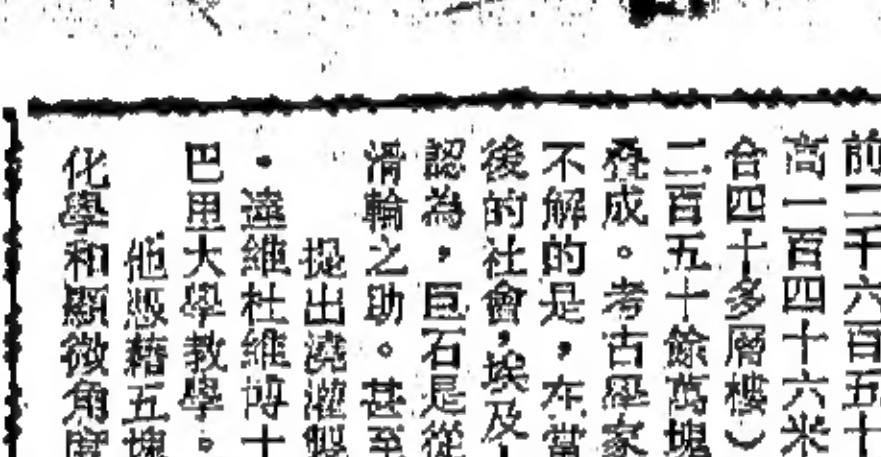 前二千六百五十
高一百四十六米
合四十多層樓）
二百五十餘萬塊
叠成。考古學家
不解的是，在當
後的社會，埃及
認為，巨石是從
滑輪之助。甚至
提出澆灌製
・達維杜維博士
巴里大學教學。
他憑藉五塊
化學和顯微角度